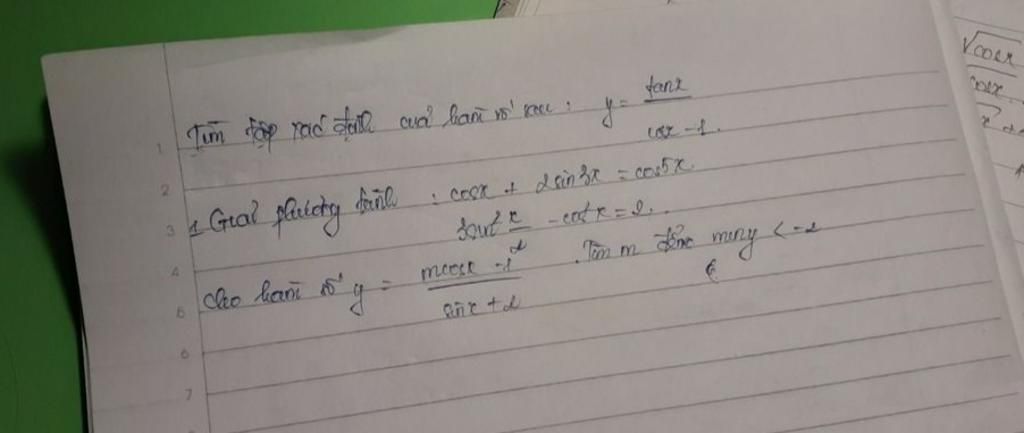 Tìm tập xác định của hàm số sau : y = tanx / cosx - 1.
1. Giải phương trình : cosx + 2sin3x = cos5x.
3cot x/2 - cot x = 2.
Cho hàm số y = mcosx - 1 / sinx + 2 . Tìm m để miny < -2
√cosx
cosx
1
2
3
4
5
6
7